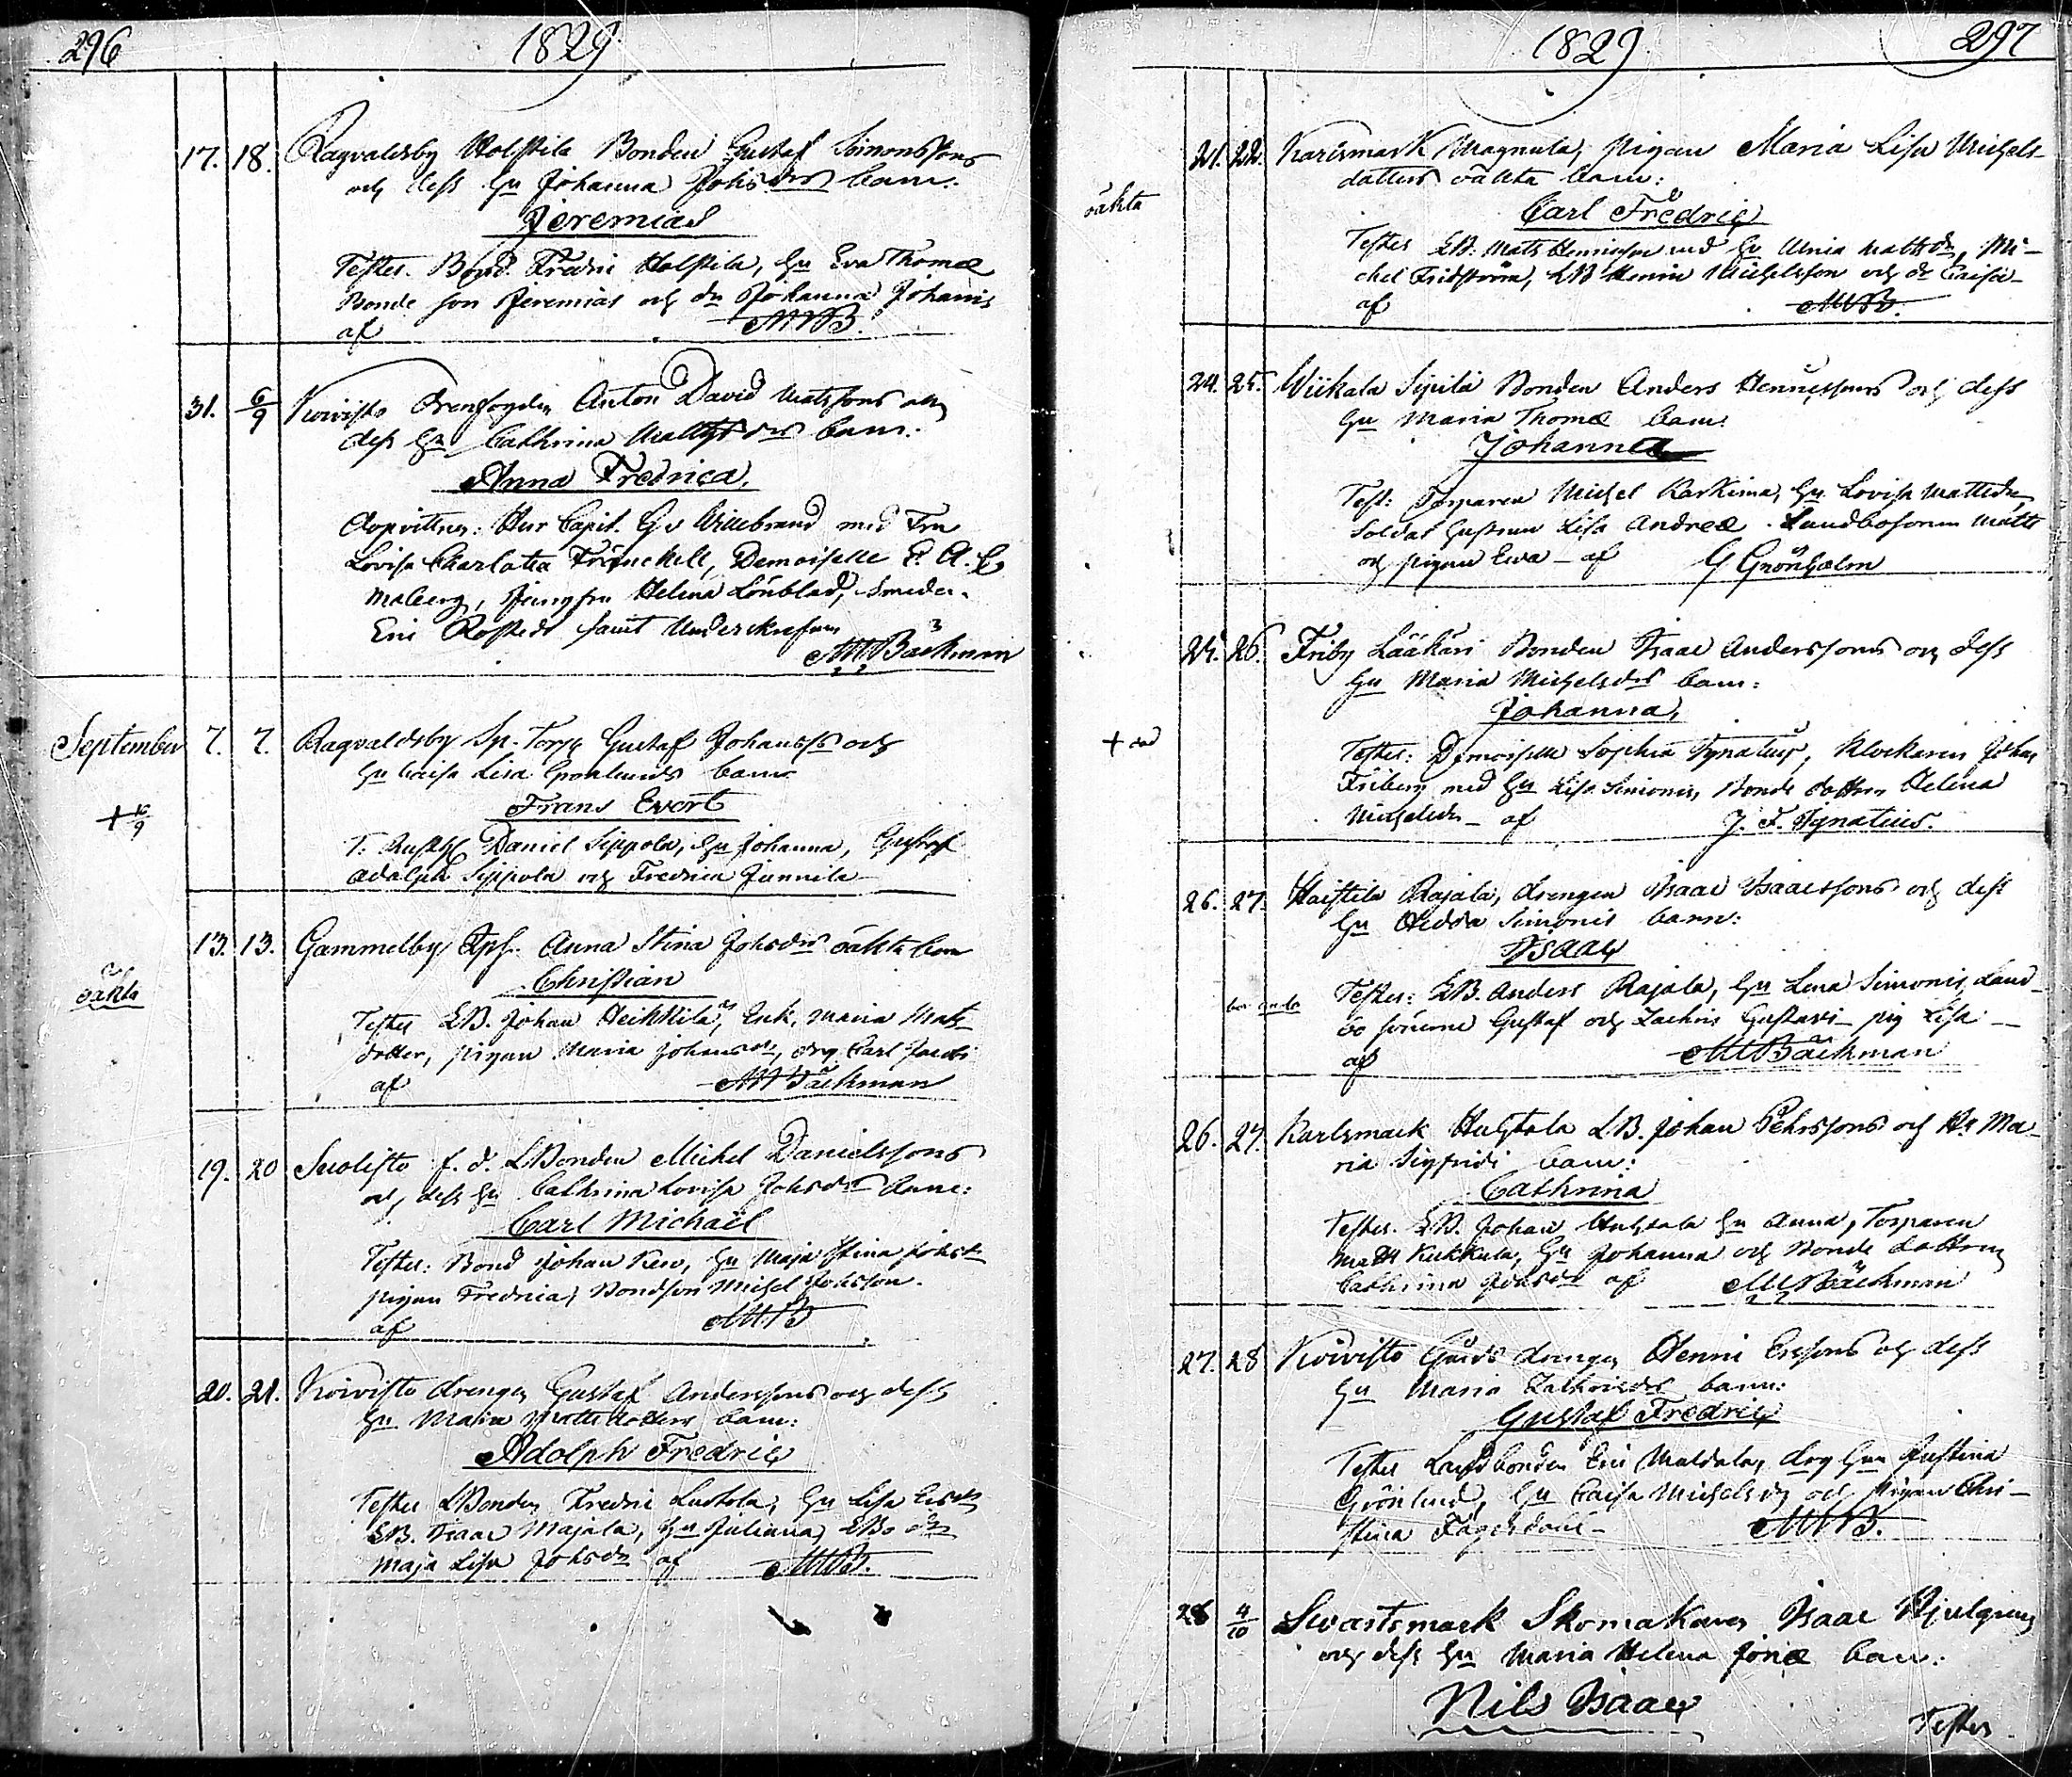 296 1829
17. 18. Ragvaldsby Holstila Bonden Gustaf Simonssons
och dess Hu Johanna Johsdrs barn:
Jeremias
Testes. Bond. Fredric Holstila, Hu Eva Thomæ
Bonde son Jeremias och dr Johanna Johannis
af MWB.
31. 6/9 Koivisto Drengfogden Anton David Matssons och
dess Hu Cathrina Mattsdrs barn:
Anna Fredrica.
Dopvittnen: Herr Capit. G v Willebrand med Fru
Lovisa Charlotta Franckell, Demoiselle E. A. C.
Malberg, Jungfru Helena Lönblad, Smeden
Eric Rostedt samt Underskrefven
MWBäckman
September 7. 7. Ragvaldsby Sp. Torp Gustaf Johanss och
Hu Caisa Lisa Grönlunds barn
Frans Evert
+ /9
T. Rusth Daniel Sippola, Hu Johanna, Gustaf
Adolph Sippola och Fredrica Junnila
13. 13. Gammelby Anna Stina Johsdrs oäkta barn
Christian
oäkta
Testes LB. Johan Heikkilä, Enk. Maria Mats
dotter, pigan Maria Johansdr, drg Carl Jacobs
af MWBäckman
19. 20 Suolisto f. d. LBonden Michel Danielssons
och dess Hu Cathrina Lovisa Johsdrs barn:
Carl Michaël
Testes: Bond Johan Keso, Hu Maja Stina Johsdr
pigan Fredrica, Bondson Michel Johsson.
af MWB
20. 21. Koivisto drengen Gustaf Anderssons och dess
Hu Maria Mattsdotters barn:
Adolph Fredric
Testes LBonden Fredric Lustola, Hu Lisa Ersdr
LB. Isaac Majala, Hu Juliana, LBo dr
Maja Lisa Johsdr af MWB.
1829 297
21. 22. Karismark Magnula, pigan Maria Lisa Michels-
dotters oäkta barn:
oäkta
Carl Fredric
Testes LB. Mats Hennicsson med Hu Maria Mattsdr, Mi-
chel Fridström, LB Henric Michelsson och dr Caisa
af MWB.
24. 25. Wiikala Sipilä Bonden Anders Hennicssons och dess
Hu Maria Thomæ barn:
Johanna
Test: Torparen Michel Karkima, Hu Lovisa Mattsdr,
Soldat Hustrun Lisa Andreæ. Landbosonen Matts
och pigan Eva - af G Grönholm
25. 26. Friby Lääkäri Bonden Isaac Anderssons och dess
Hu Maria Michelsdrs barn:
Johanna,
+ död
Testes: Demoiselle Sophia Ignatius, Klockaren Johan
Friberg med Hu Lisa Simonis, Bonde dottren Helena
Michelsdr - af J. F. Ignatius.
26. 27. Haistila Rajala, drengen Isaac Isaacssons och dess
Hu Hedda Simonis barn:
Isaac
Testes: LB. Anders Rajala, Hu Lena Simonis, Land-
bo sönerne Gustaf och Zachris Gustavi - pig Lisa
af MWBäckman
26. 27. Karlsmark Huhtala LB. Johan Pehrssons och Hu Ma-
ria Sigfridi barn:
Cathrina
Testes. LB. Johan Huhtala Hu Anna, Torparen
Matts Kukkula, Hu Johanna och Bonde dottren
Cathrina Johsdr af MWBäckman
27. 28 Koivisto Gårds drengen Henric Erssons och dess
Hu Maria Zachrisdrs barn:
Gustaf Fredric
Testes Landbonden Eric Maldala, drg Hu Justina
Grönlund, Hu Caisa Michelsdr och pigan Chri-
stina Fagerdahl - MWB.
28 4/10 Swartsmark Skomakaren Isaac Hjulgrens
och dess Hu Maria Helena Jonæ barn:
Nils Isaac
Testes